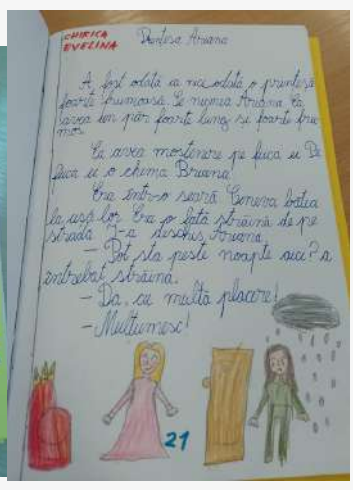 CHIRICA
EVELINA
Prințesa Ariana
A fost odată ca nici odată o prințesă
foarte frumoasă. Se numea Ariana. Ea
avea un păr foarte lung și foarte fru
mos.
Ea avea moștenere pe fiica ei. Pe
fiica ei o chema Briana.
Era într-o seară. Cineva bătea
la ușa lor. Era o fată străină de pe
stradă. I-a deschis Ariana.
- Pot sta peste noapte aici? a
întrebat străina.
- Da, cu multă plăcere!
- Mulțumesc!
21